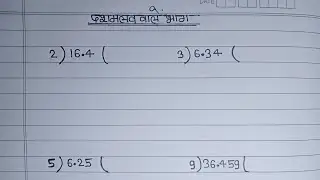 दशमलव वाले भाग
2)16.4( 3)6.34(
5)6.25( 9)36.459(